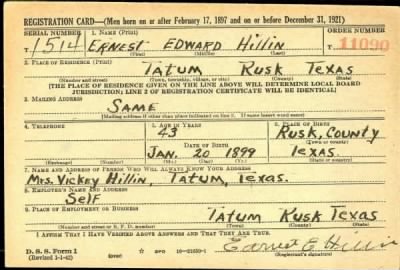 REGISTRATION CARD—(Men born on or after February 17, 1897 and on or before December 31, 1921)
SERIAL NUMBER 1. NAME (Print) ORDER NUMBER
T 1514 ERNEST EDWARD HILLIN 11090
(First) (Middle) (Last)
2. PLACE OF RESIDENCE (Print)
TATUM RUSK TEXAS
(Number and street) (Town, township, village, or city) (County) (State)
[THE PLACE OF RESIDENCE GIVEN ON THE LINE ABOVE WILL DETERMINE LOCAL BOARD
JURISDICTION; LINE 2 OF REGISTRATION CERTIFICATE WILL BE IDENTICAL]
3. MAILING ADDRESS
SAME
[Mailing address if other than place indicated on line 2. If same insert word same]
4. TELEPHONE 5. AGE IN YEARS 6. PLACE OF BIRTH
43 RUSK, COUNTY
DATE OF BIRTH (Town or county)
JAN. 20 1899 TEXAS
(Exchange) (Number) (Mo.) (Day) (Yr.) (State or country)
7. NAME AND ADDRESS OF PERSON WHO WILL ALWAYS KNOW YOUR ADDRESS
Mrs. Vickey Hillin, Tatum, Texas.
8. EMPLOYER'S NAME AND ADDRESS
Self
9. PLACE OF EMPLOYMENT OR BUSINESS
TATUM RUSK TEXAS
(Number and street or R. F. D. number) (Town) (County) (State)
I AFFIRM THAT I HAVE VERIFIED ABOVE ANSWERS AND THAT THEY ARE TRUE.
D. S. S. Form 1
(Revised 1-1-42) (over) GPO 16—21630-1 Earnest E Hillin
(Registrant's signature)